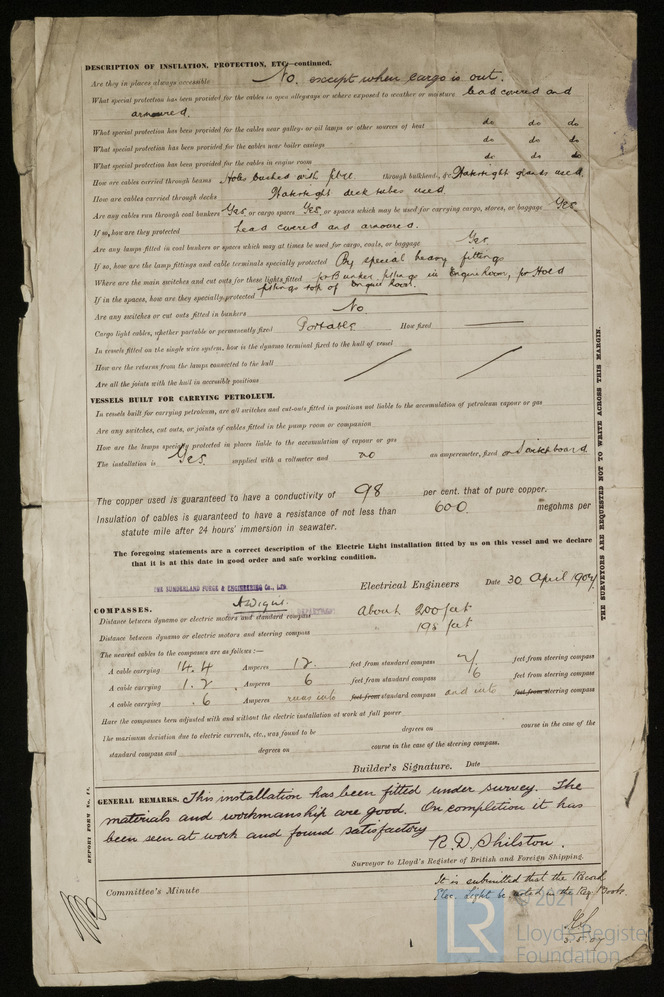 DESCRIPTION OF INSULATION, PROTECTION, ETC—continued.
Are they in places always accessible No, except when cargo is out.
What special protection has been provided for the cables in open alleyways or where exposed to weather or moisture lead covered and
armoured.
What special protection has been provided for the cables near galleys or oil lamps or other sources of heat do do do
What special protection has been provided for the cables near boiler casings do do do
What special protection has been provided for the cables in engine room do do do
How are cables carried through beams Holes bushed with fibre through bulkheads, &c. Watertight glands used.
How are cables carried through decks Watertight deck tubes used
Are any cables run through coal bunkers Yes or cargo spaces Yes or spaces which may be used for carrying cargo, stores, or baggage Yes
If so, how are they protected Lead covered and armoured.
Are any lamps fitted in coal bunkers or spaces which may at times be used for cargo, coals, or baggage Yes
If so, how are the lamp fittings and cable terminals specially protected By special heavy fittings
Where are the main switches and cut outs for these lights fitted for Bunker fittings in Engine Room, for Hold
fittings top of Engine Room.
If in the spaces, how are they specially protected
Are any switches or cut outs fitted in bunkers No
Cargo light cables, whether portable or permanently fixed Portable How fixed
In vessels fitted on the single wire system, how is the dynamo terminal fixed to the hull of vessel
How are the returns from the lamps connected to the hull
Are all the joints with the hull in accessible positions
VESSELS BUILT FOR CARRYING PETROLEUM.
In vessels built for carrying petroleum, are all switches and cut-outs fitted in positions not liable to the accumulation of petroleum vapour or gas
Are any switches, cut outs, or joints of cables fitted in the pump room or companion
How are the lamps specially protected in places liable to the accumulation of vapour or gas
The installation is Yes supplied with a voltmeter and no an amperemeter, fixed on Switchboard
The copper used is guaranteed to have a conductivity of 98 per cent. that of pure copper.
Insulation of cables is guaranteed to have a resistance of not less than 600 megohms per
statute mile after 24 hours' immersion in seawater.
The foregoing statements are a correct description of the Electric Light installation fitted by us on this vessel and we declare
that it is at this date in good order and safe working condition.
THE SUNDERLAND FORGE & ENGINEERING CO., LTD.
Electrical Engineers Date 30 April 1907
DEPARTMENT
COMPASSES.
Distance between dynamo or electric motors and standard compass About 200 feet
Distance between dynamo or electric motors and steering compass 198 feet
The nearest cables to the compasses are as follows:—
A cable carrying 14.4 Amperes 12 feet from standard compass 7 feet from steering compass
A cable carrying 1.2 Amperes 6 feet from standard compass 6 feet from steering compass
A cable carrying .6 Amperes runs into feet from standard compass and into feet from steering compass
Have the compasses been adjusted with and without the electric installation at work at full power
The maximum deviation due to electric currents, etc., was found to be degrees on course in the case of the
standard compass and degrees on course in the case of the steering compass.
Builder's Signature. Date
GENERAL REMARKS. This installation has been fitted under survey. The
materials and workmanship are good. On completion it has
been seen at work and found satisfactory
R. D. Shilston.
Surveyor to Lloyd's Register of British and Foreign Shipping.
It is submitted that the Record
Elec. Light be noted in the Reg. Book.
Committee's Minute
3.5.07
THE SURVEYORS ARE REQUESTED NOT TO WRITE ACROSS THIS MARGIN.
REPORT FORM No. 11.
LR
© 2021
Lloyd's Register
Foundation